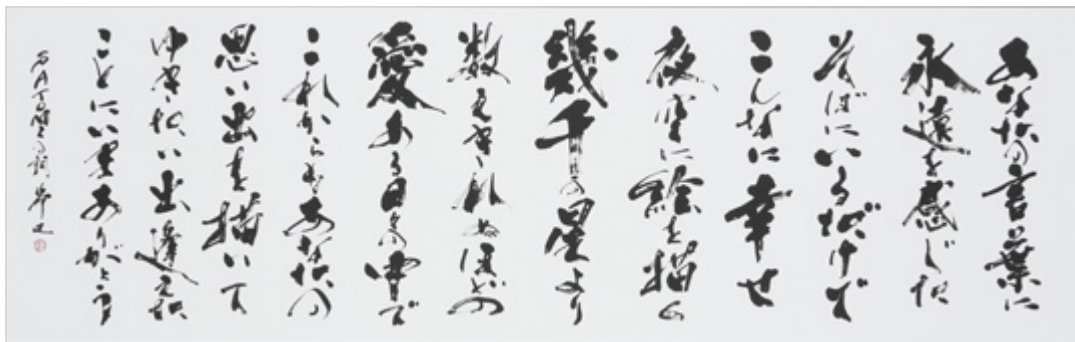 あなたの言葉に
永遠を感じた
そばにいるだけで
こんなに幸せ
夜空に絵を描く
幾千の星より
数えきれぬほどの
愛ある日々の中で
これからもあなたの
思い出を描いて
ゆきたい出逢えた
ことにいまありがとう
の詞